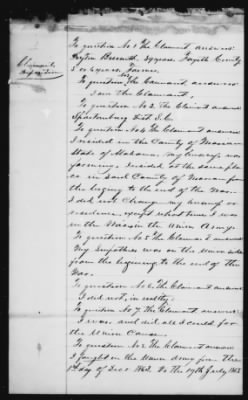 Claimant's
Deposition
To question No 1 the Claimant answers
39 years Fayette County
6 years Farmer
To question the Claimant answers
I am the Claimant.
To question No 3 the Claimant answers
Spartanburg Dist S.C.
To question No 4 the Claimant answers
I resided in the County of
State of Alabama. My business was
farming. I resided at the same pla
ce in said County of from
the beginning to the end of the War.
I did not change my business or
residence, except what time I was
in the War in the Union Army.
To question No 5 the Claimant answers
My Sympathies was on the Union side
from the beginning to the end of the
War.
To question No 6 the Claimant answers
I did not, in reality.
To question No 7 the Claimant answers
I was and did all I could for
the Union Cause.
To question No 8 the Claimant answers
I fought in the Union Army from the
1st day of Dec 1862 to the 19th July 1863